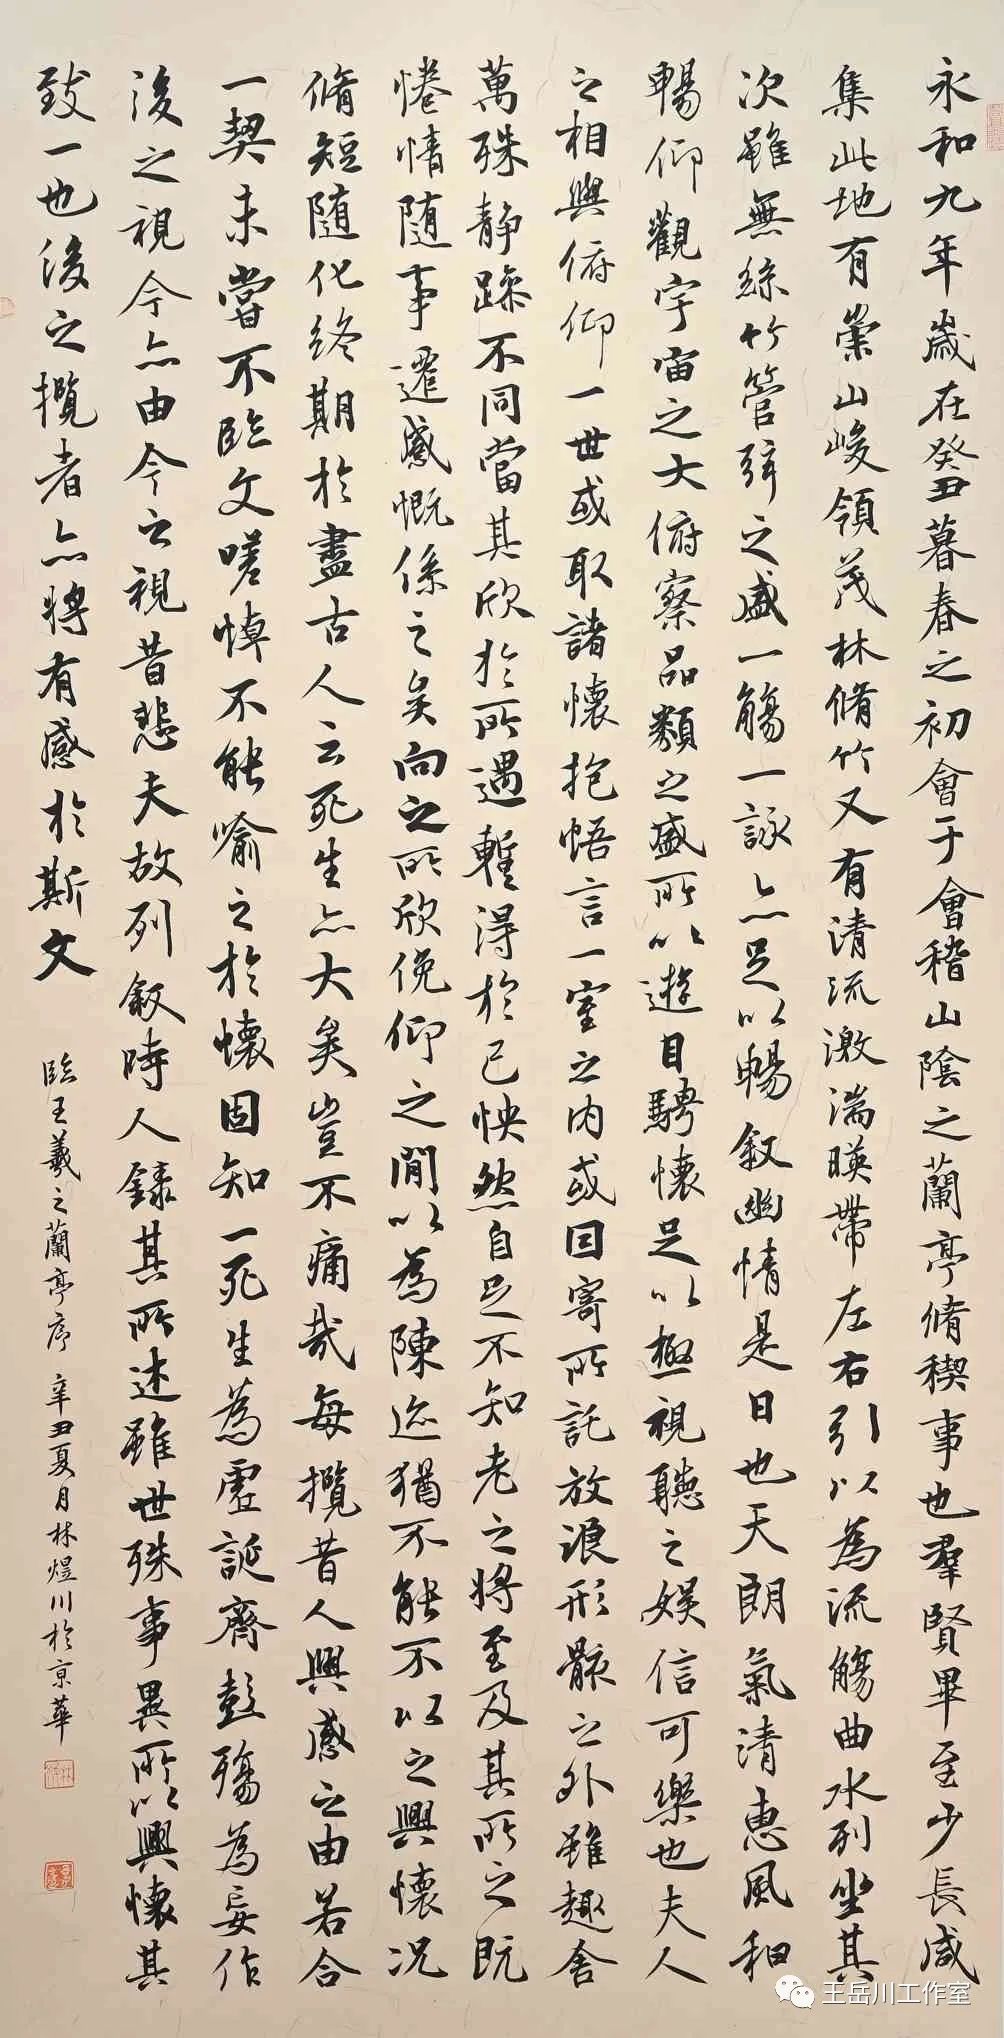 永和九年歲在癸丑暮春之初會于會稽山陰之蘭亭脩稧事也羣賢畢至少長咸
集此地有崇山峻領茂林脩竹又有清流激湍暎帶左右引以為流觴曲水列坐其
次雖無絲竹管弦之盛一觴一詠亦足以暢叙幽情是日也天朗氣清惠風和
暢仰觀宇宙之大俯察品類之盛所以遊目騁懷足以極視聽之娛信可樂也夫人
之相與俯仰一世或取諸懷抱悟言一室之內或因寄所託放浪形骸之外雖趣舍
萬殊静躁不同當其欣於所遇暫得於己怏然自足不知老之將至及其所之既
惓情隨事遷感慨係之矣向之所欣俛仰之閒以為陳迹猶不能不以之興懷況
脩短隨化終期於盡古人云死生亦大矣豈不痛哉每攬昔人興感之由若合
一契未嘗不臨文嗟悼不能喻之於懷固知一死生為虛誕齊彭殤為妄作
後之視今亦由今之視昔悲夫故列叙時人錄其所述雖世殊事異所以興懷其
致一也後之攬者亦將有感於斯文
臨王羲之蘭亭序 辛丑夏月林煜川於京華
王岳川工作室